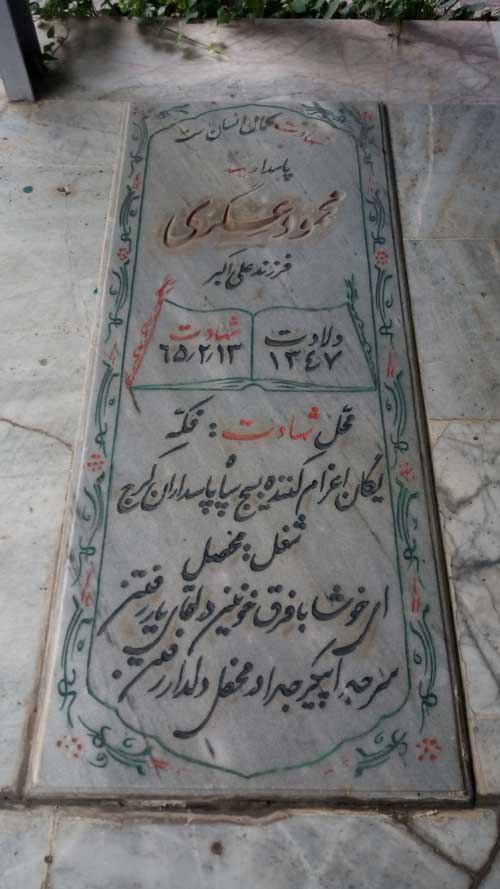 شهادت کمال انسان است
پاسدار
محمود عسکری
فرزند علی اکبر
ولادت ۱۳۴۷
شهادت ۶۵/۲/۱۳
محل شهادت: فکه
یگان اعزام کننده بسیج سپاه پاسداران کرج
شغل: محصل
ای خوشا با فرق خونین در لقای یار رفتن
سر جدا پیکر جدا در محفل دلدار رفتن